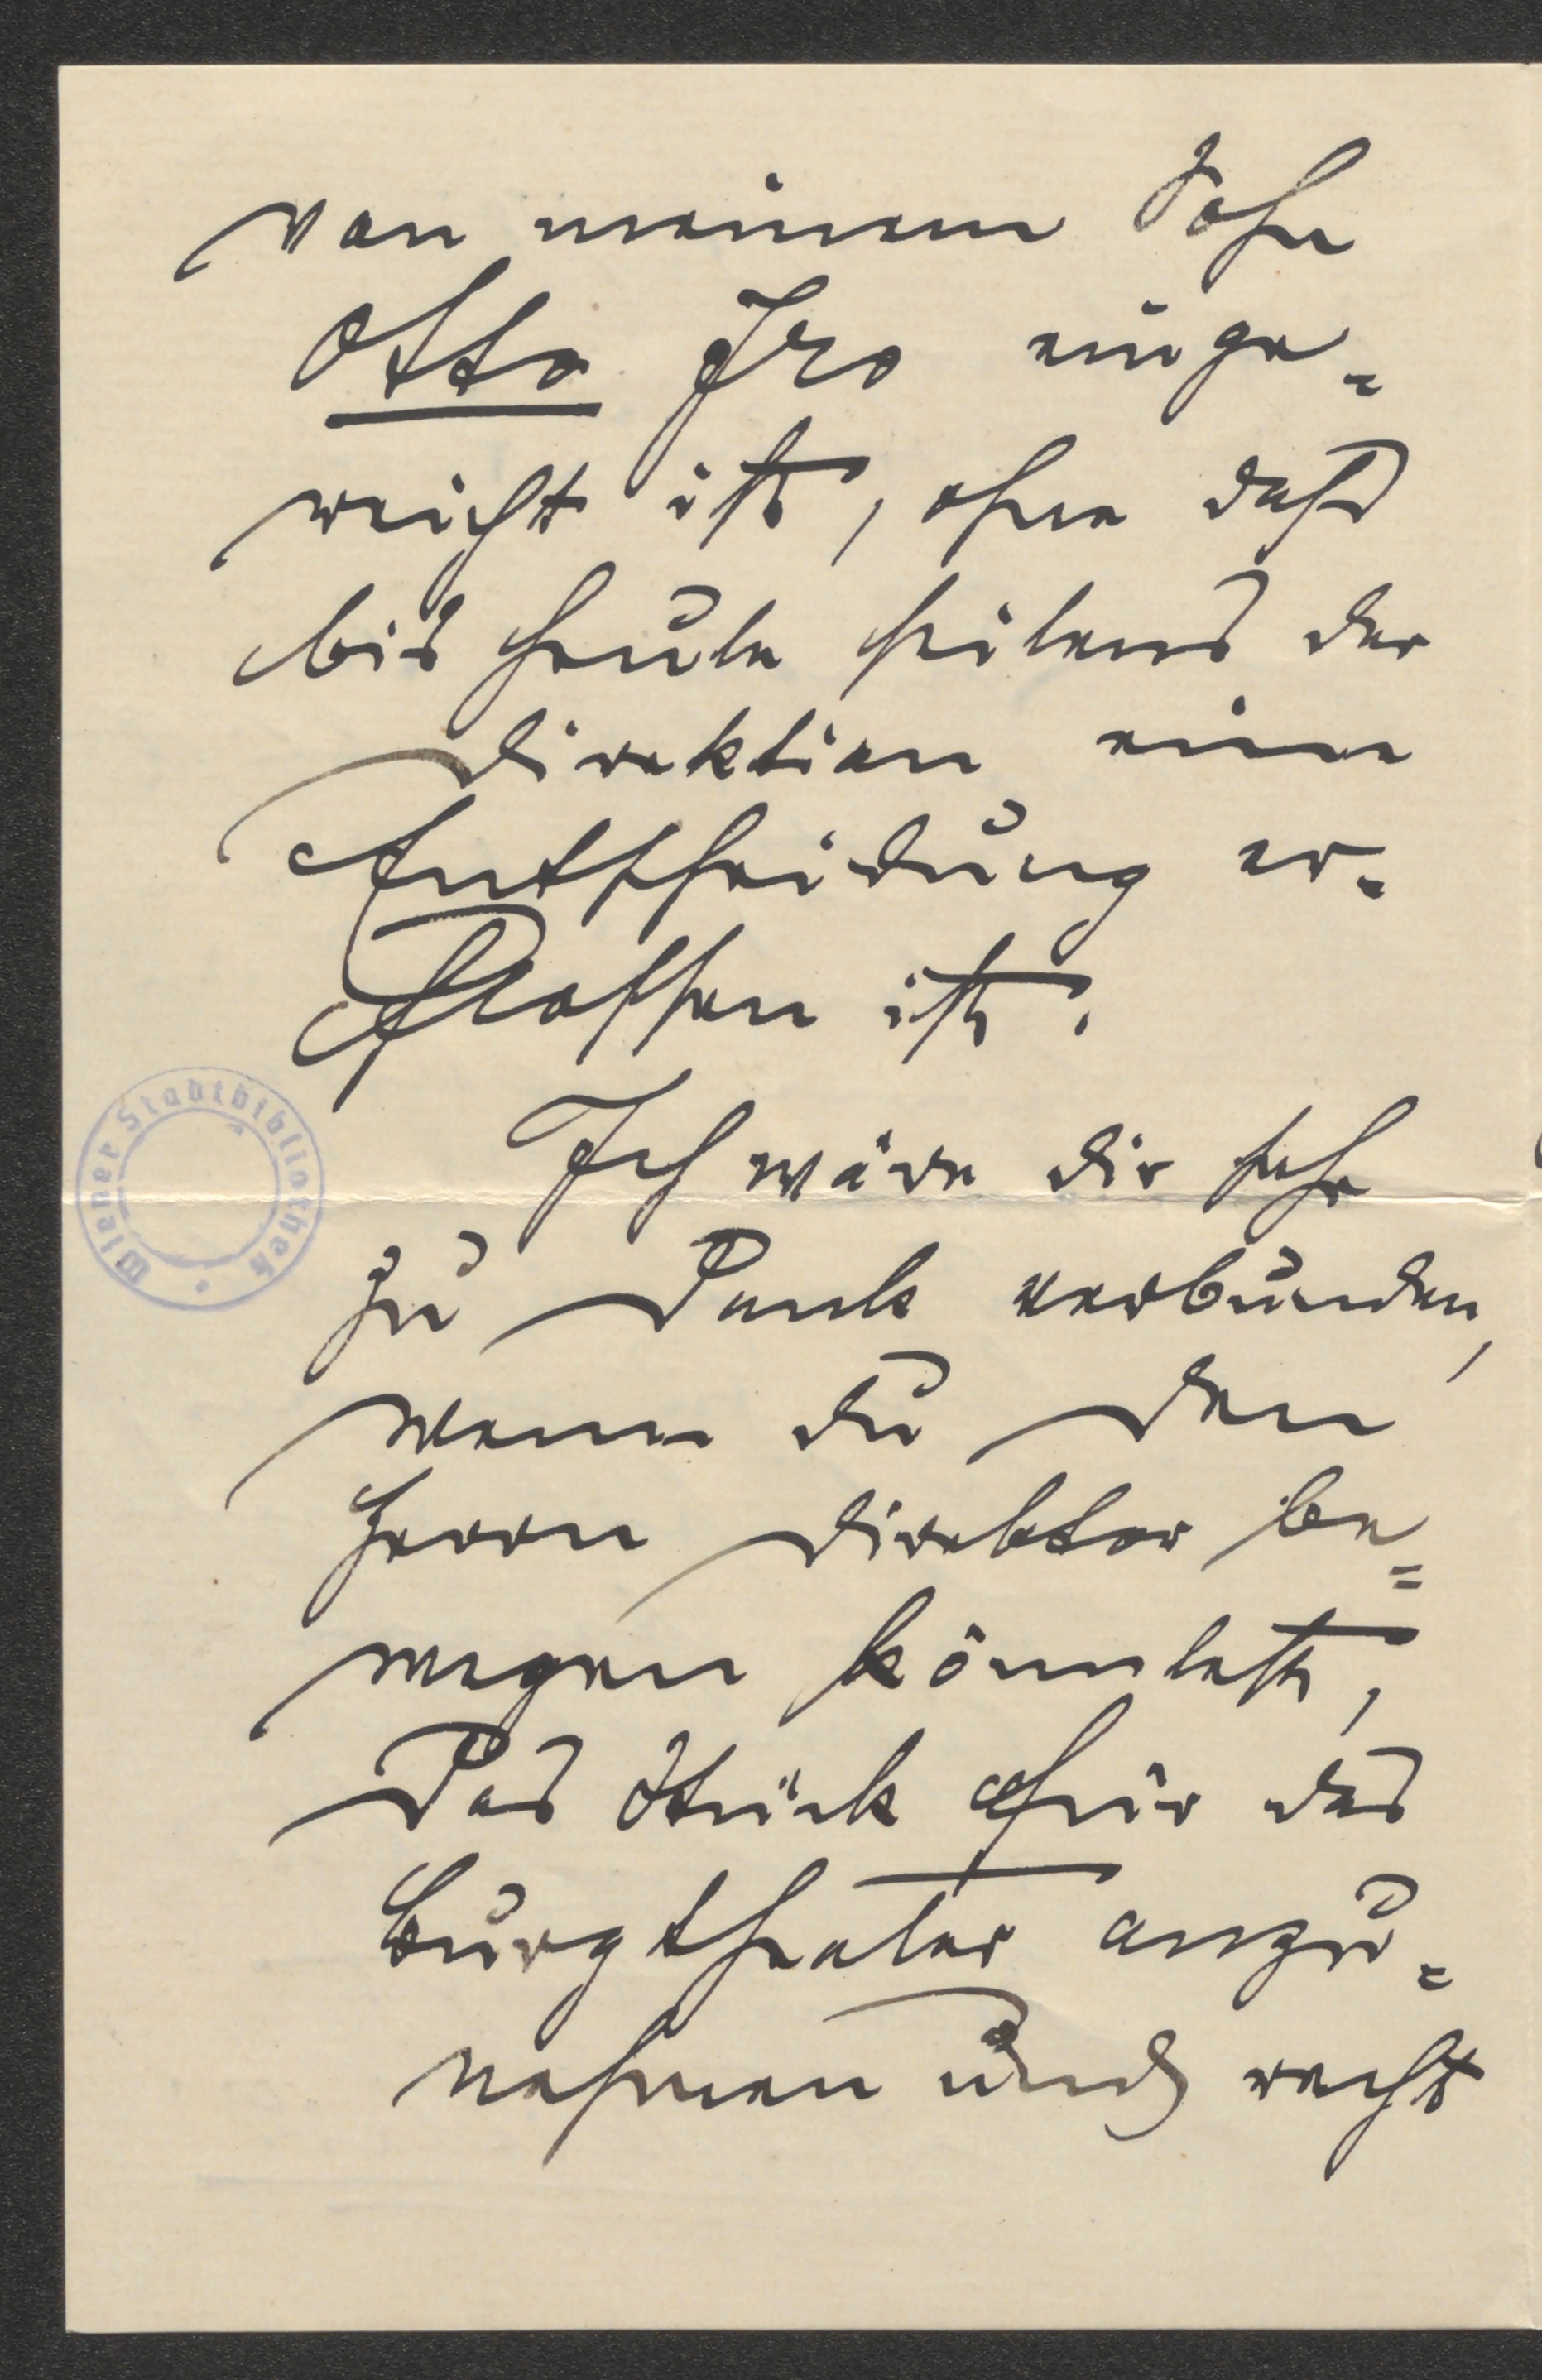 von meinem Sohn
Otto Iro einge=
reicht ist, ohne daß
bis heute seitens der
Direktion eine
Entscheidung er=
flossen ist.
Wiener Stadtbibliothek
Ich wäre dir sehr
zu Dank verbunden,
wenn du den
Herrn Direktor be=
wegen könntest,
das Stück für das
Burgtheater anzu=
nehmen und recht